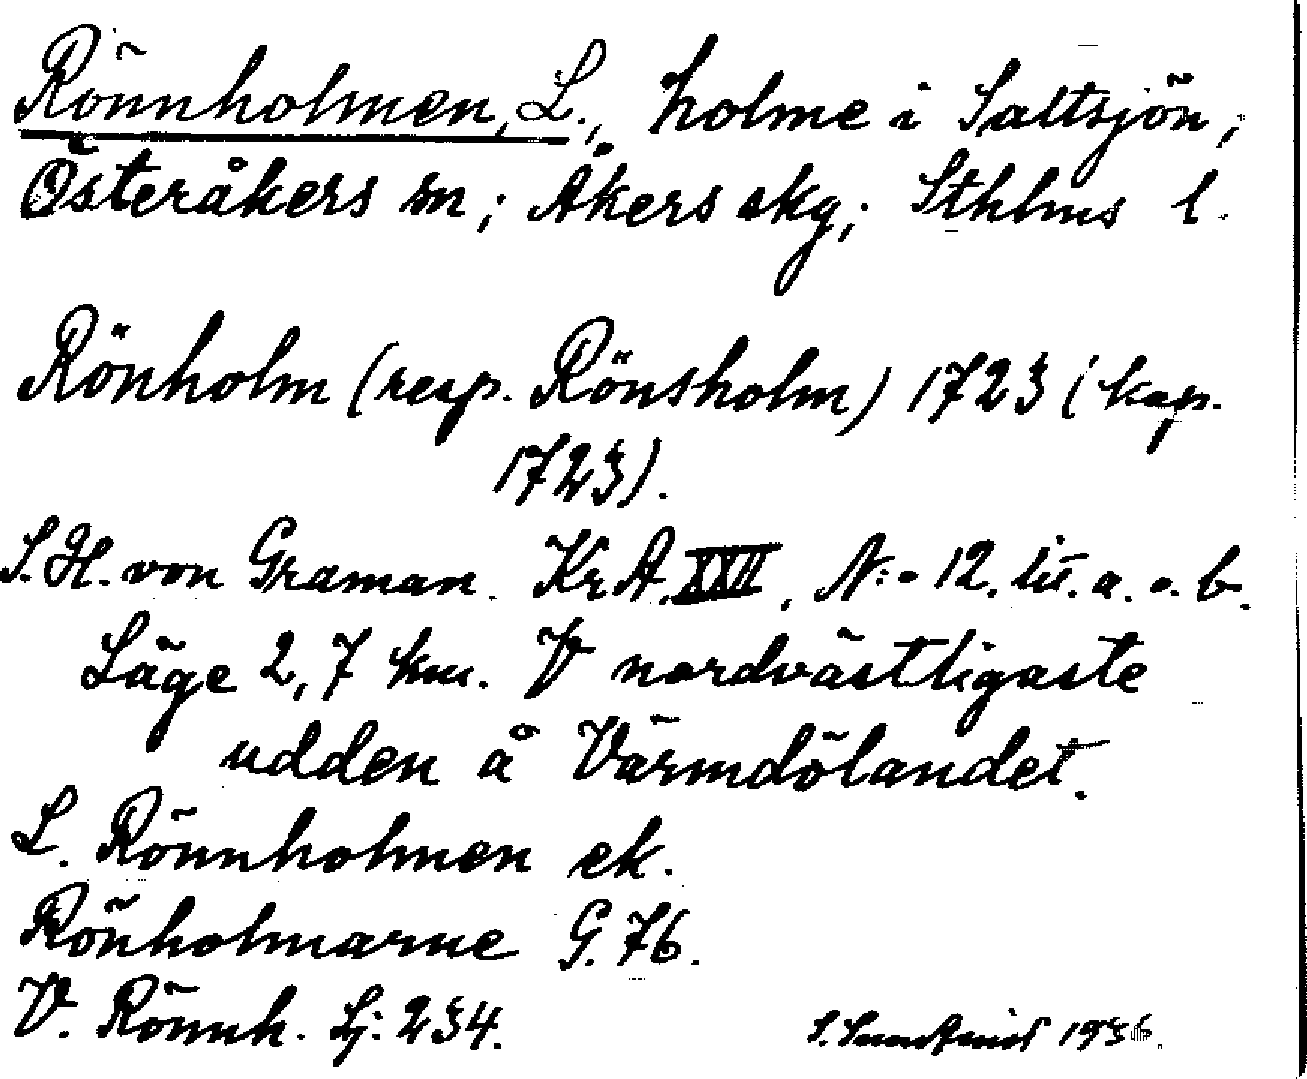 Rönnholmen, L., holme i Saltsjön,
Österåkers sn; Åkers skg; Sthlms l.
Rönholm (resp. Rönsholm) 1723 (kop.
1723).
S. H. von Graman. Kr A. XXII, N:o 12. lit. a. o. b.
Läge 2,7 km. V nordvästligaste
udden å Värmdölandet.
L. Rönnholmen ek.
Rönholmarne G. 76.
V. Rönnh. Lj: 234.
S. 1936.